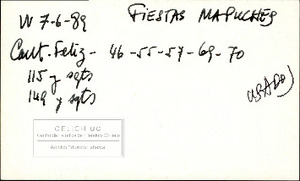 W 7-6-89 FIESTAS MAPUCHES
Caut. Feliz - 46 - 55 - 57 - 69 - 70
115 y sgts
149 y sgts
(USADO)
CELICH UC